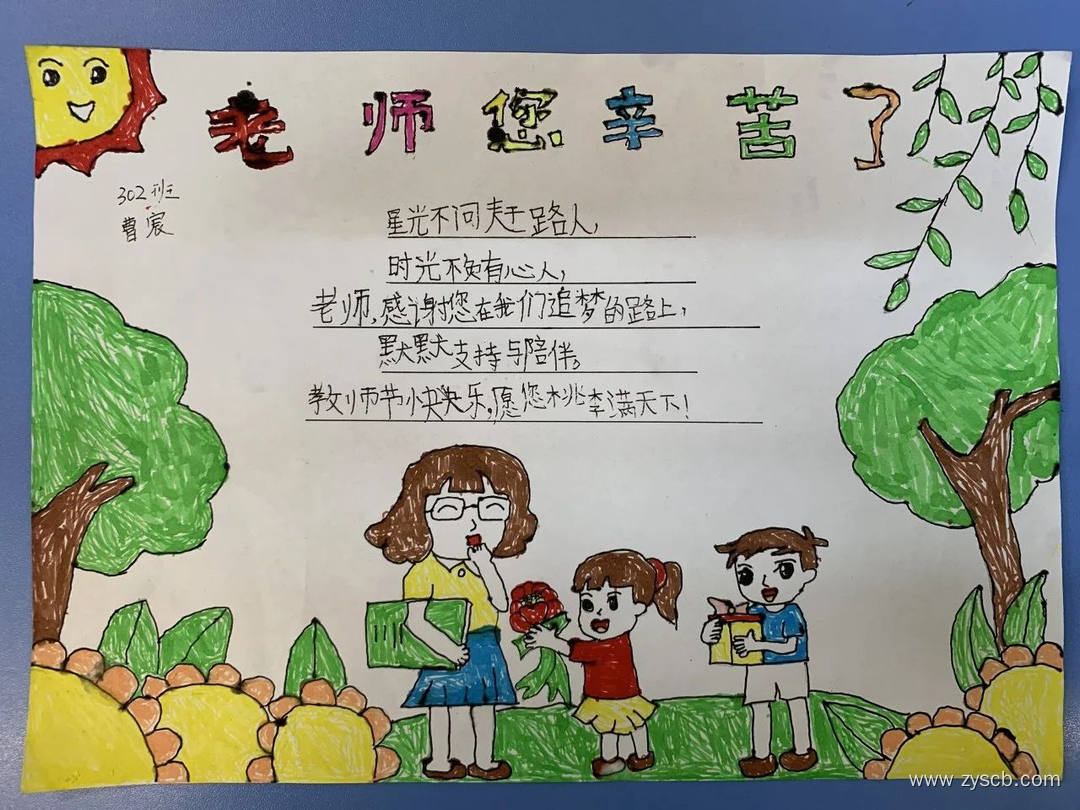 老师您辛苦了
302班
曹宸
星光不问赶路人,
时光不负有心人,
老师,感谢您在我们追梦的路上,
默默支持与陪伴。
教师节快乐,愿您桃李满天下!
www.zyscb.com